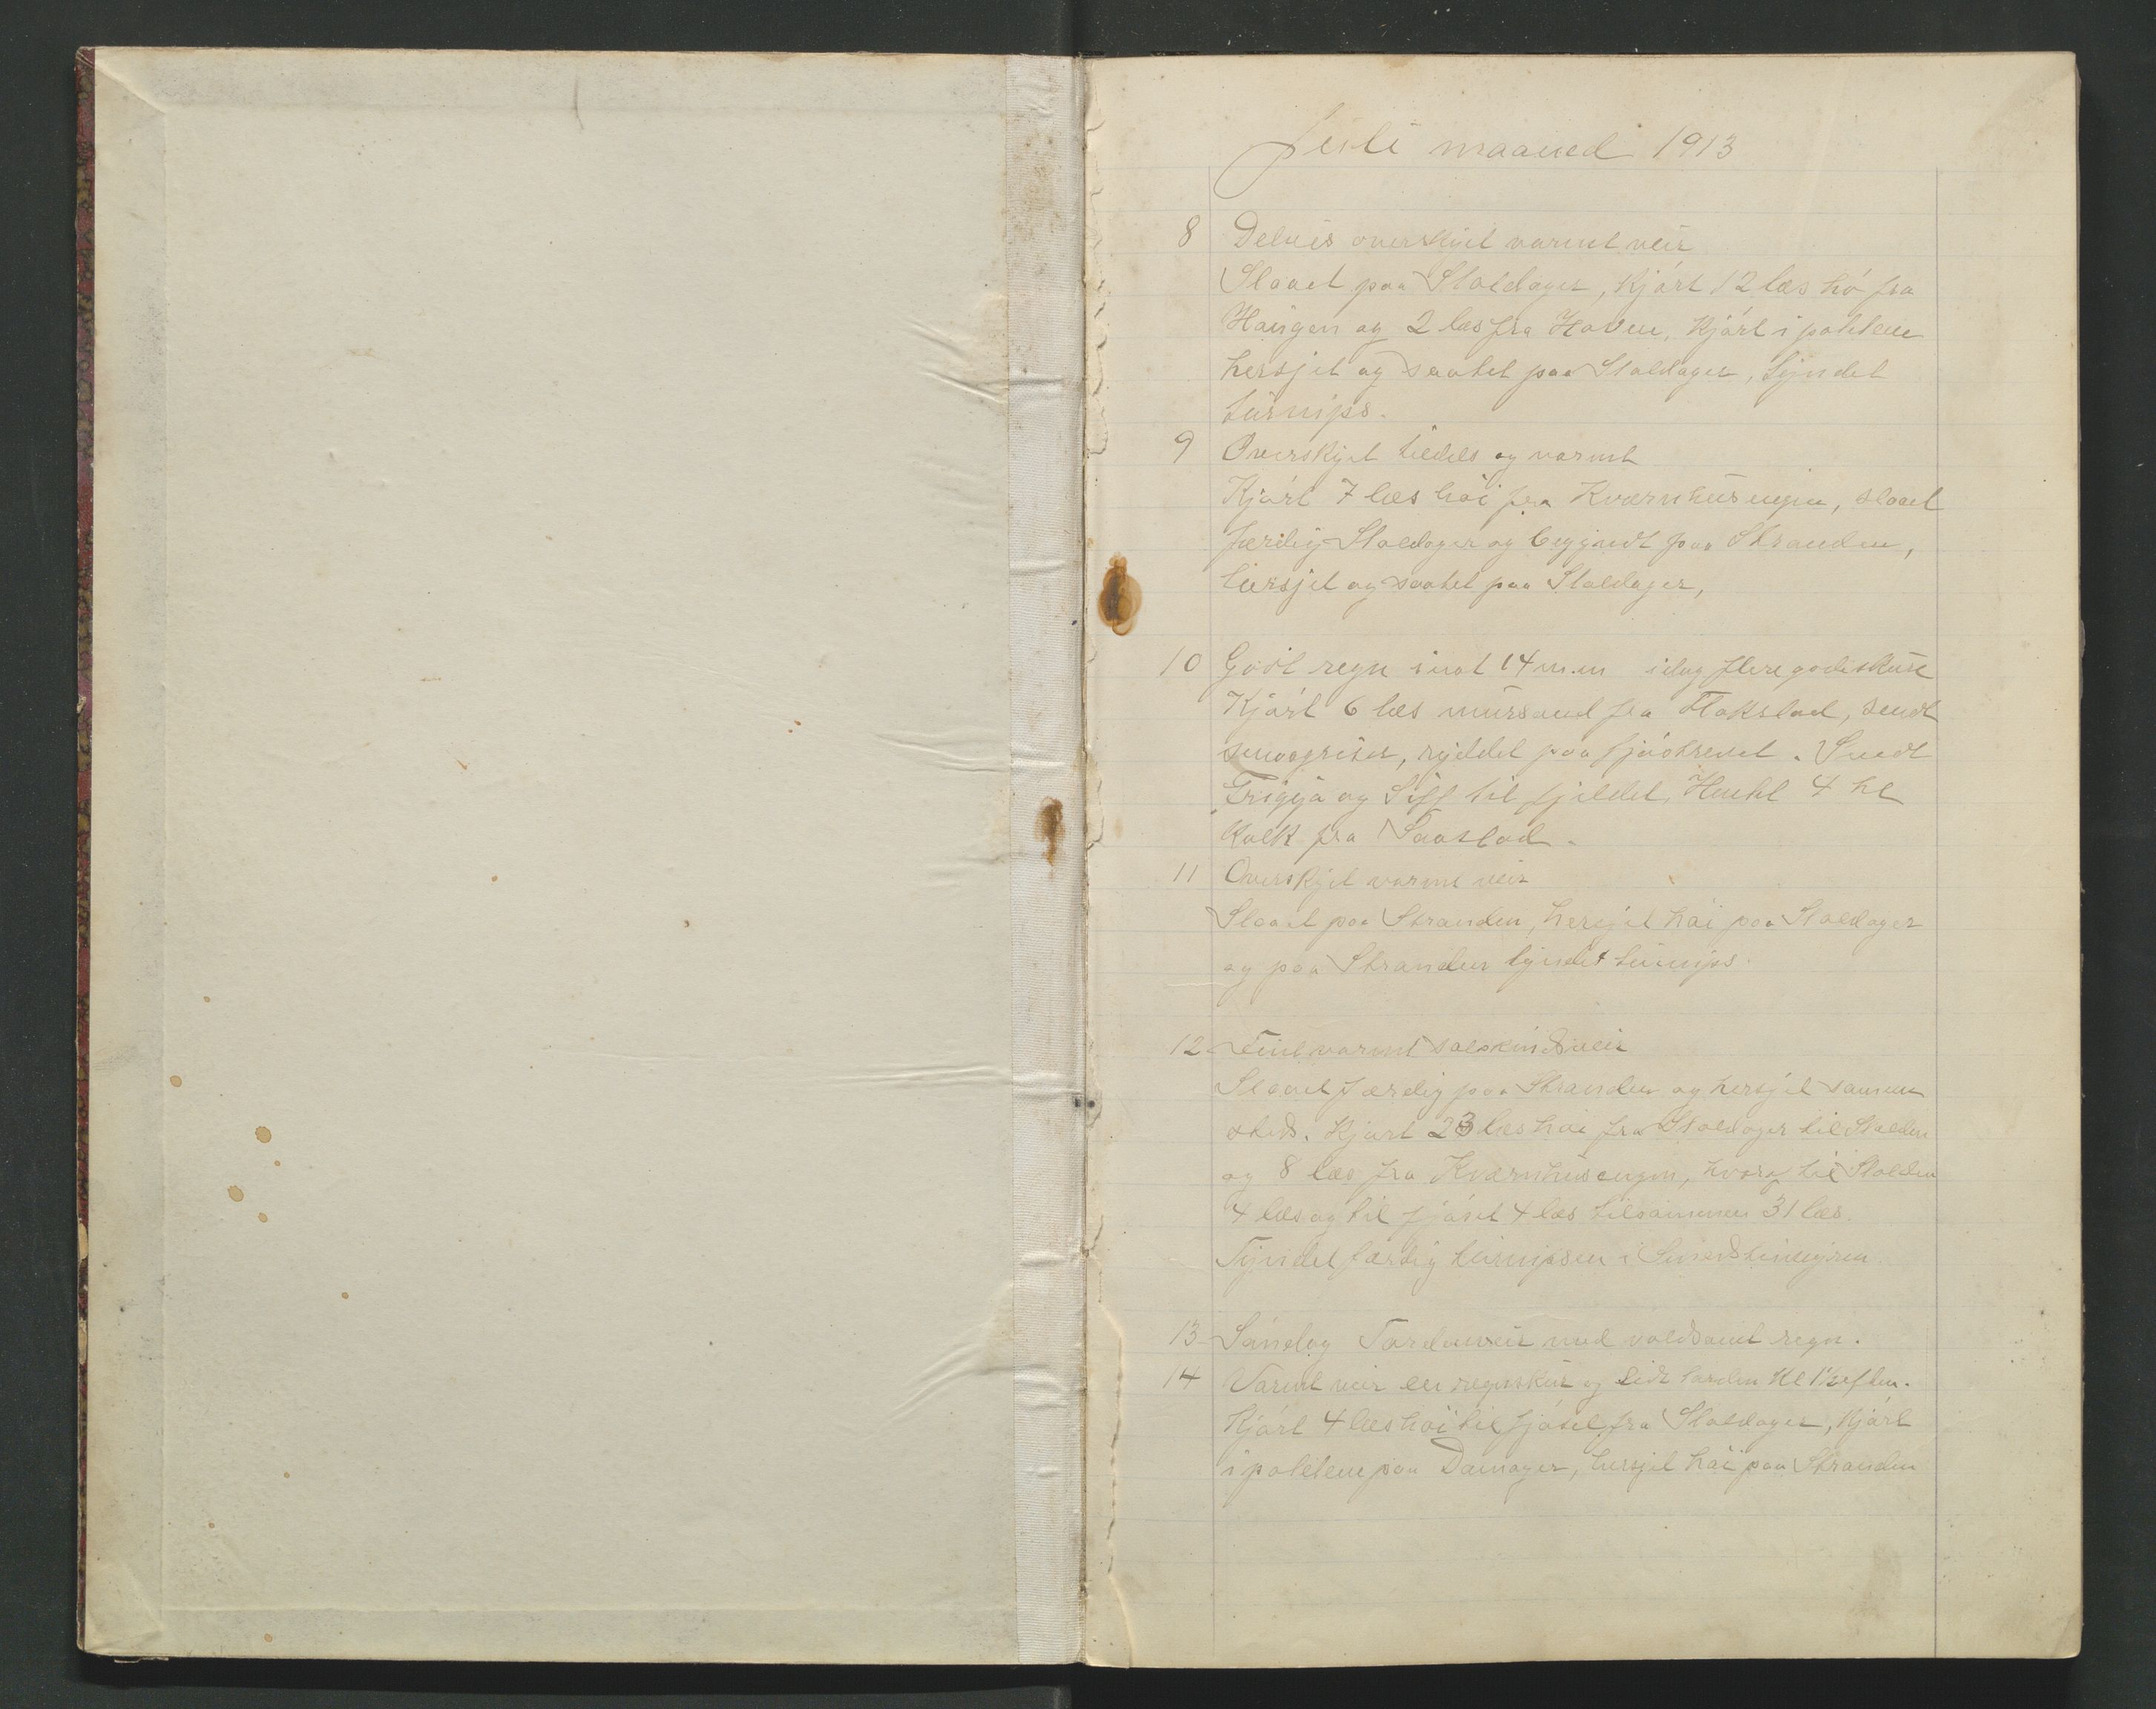 Juli maaned 1913
8 Delvis overskyet varmt veir
Slaaet paa Staldager, kjørt 12 læs hø fra
Haugen og 2 læs fra Haven, kjørt i potetene
hersjet og saatet paa Staldager, tyndet
turnips.
9 Overskyet tildels og varmt
Kjørt 7 læs høi fra Kværnhusengen, slaaet
færdig Staldager og begyndt paa Stranden,
hersjet og saatet paa Staldager,
10 Godt regn inat 14 m.m idag flere gode skure
Kjørt 6 læs mursand fra Flakstad, sendt
smaagriser, ryddet paa fjøstrevet. Sendt
Frigga og Siff til fjeldet, Hentet 4 hl
kalk fra Saastad.
11 Overskyet varmt veir
Slaaet paa Stranden, hersjet høi paa Staldager
og paa Stranden tyndet turnips.
12 Fint varmt solskinsveir
Slaaet færdig paa Stranden og hersjet samme
steds. Kjørt 23 læs høi fra Staldager til Stalden
og 8 læs fra Kværnhusengen, hvoraf til Stalden
4 læs og til fjøset 4 læs tilsammen 31 læs.
Tyndet færdig turnipsen i
13 Søndag Tordenveir med voldsomt regn.
14 Varmt veir en regnskur og lidt torden Kl 1½ eftm.
Kjørt 4 læs høi til fjøset fra Staldager, kjørt
i potetene paa Damager, hersjet høi paa Stranden